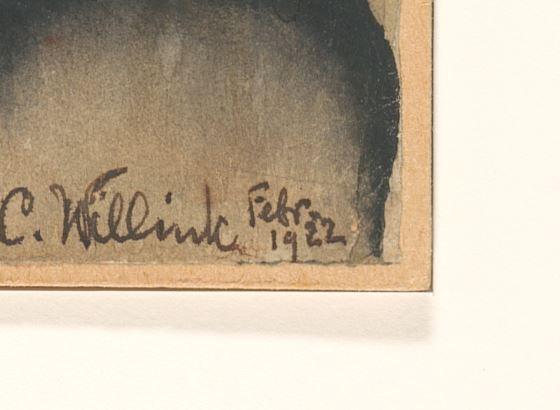 C. Willink Febr.
1922